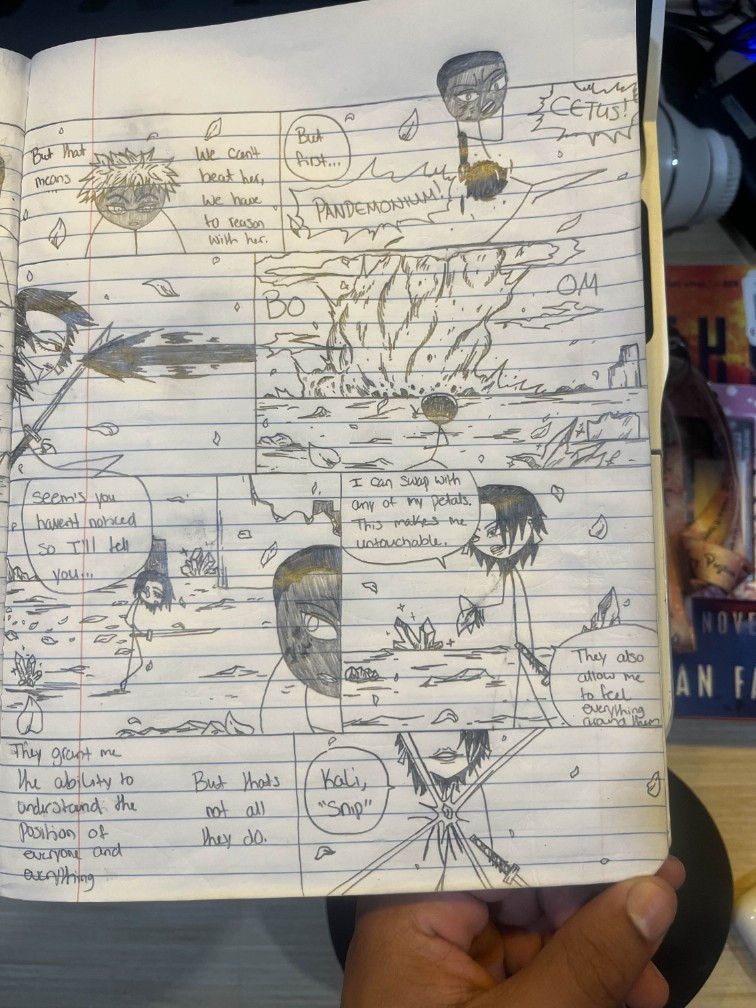 But that
means
We can't
beat her,
we have
to reason
with her.
But
first...
CETUS!
PANDEMONIUM!
BO
OM
seem's you
havent noticed
so I'll tell
you...
I can swap with
any of my petals.
This makes me
untouchable.
They also
allow me
to feel
everything
around them
They grant me
the ability to
understand the
position of
everyone and
everything
But thats
not all
they do.
Kali,
"Snip"
NOVE
AN FA